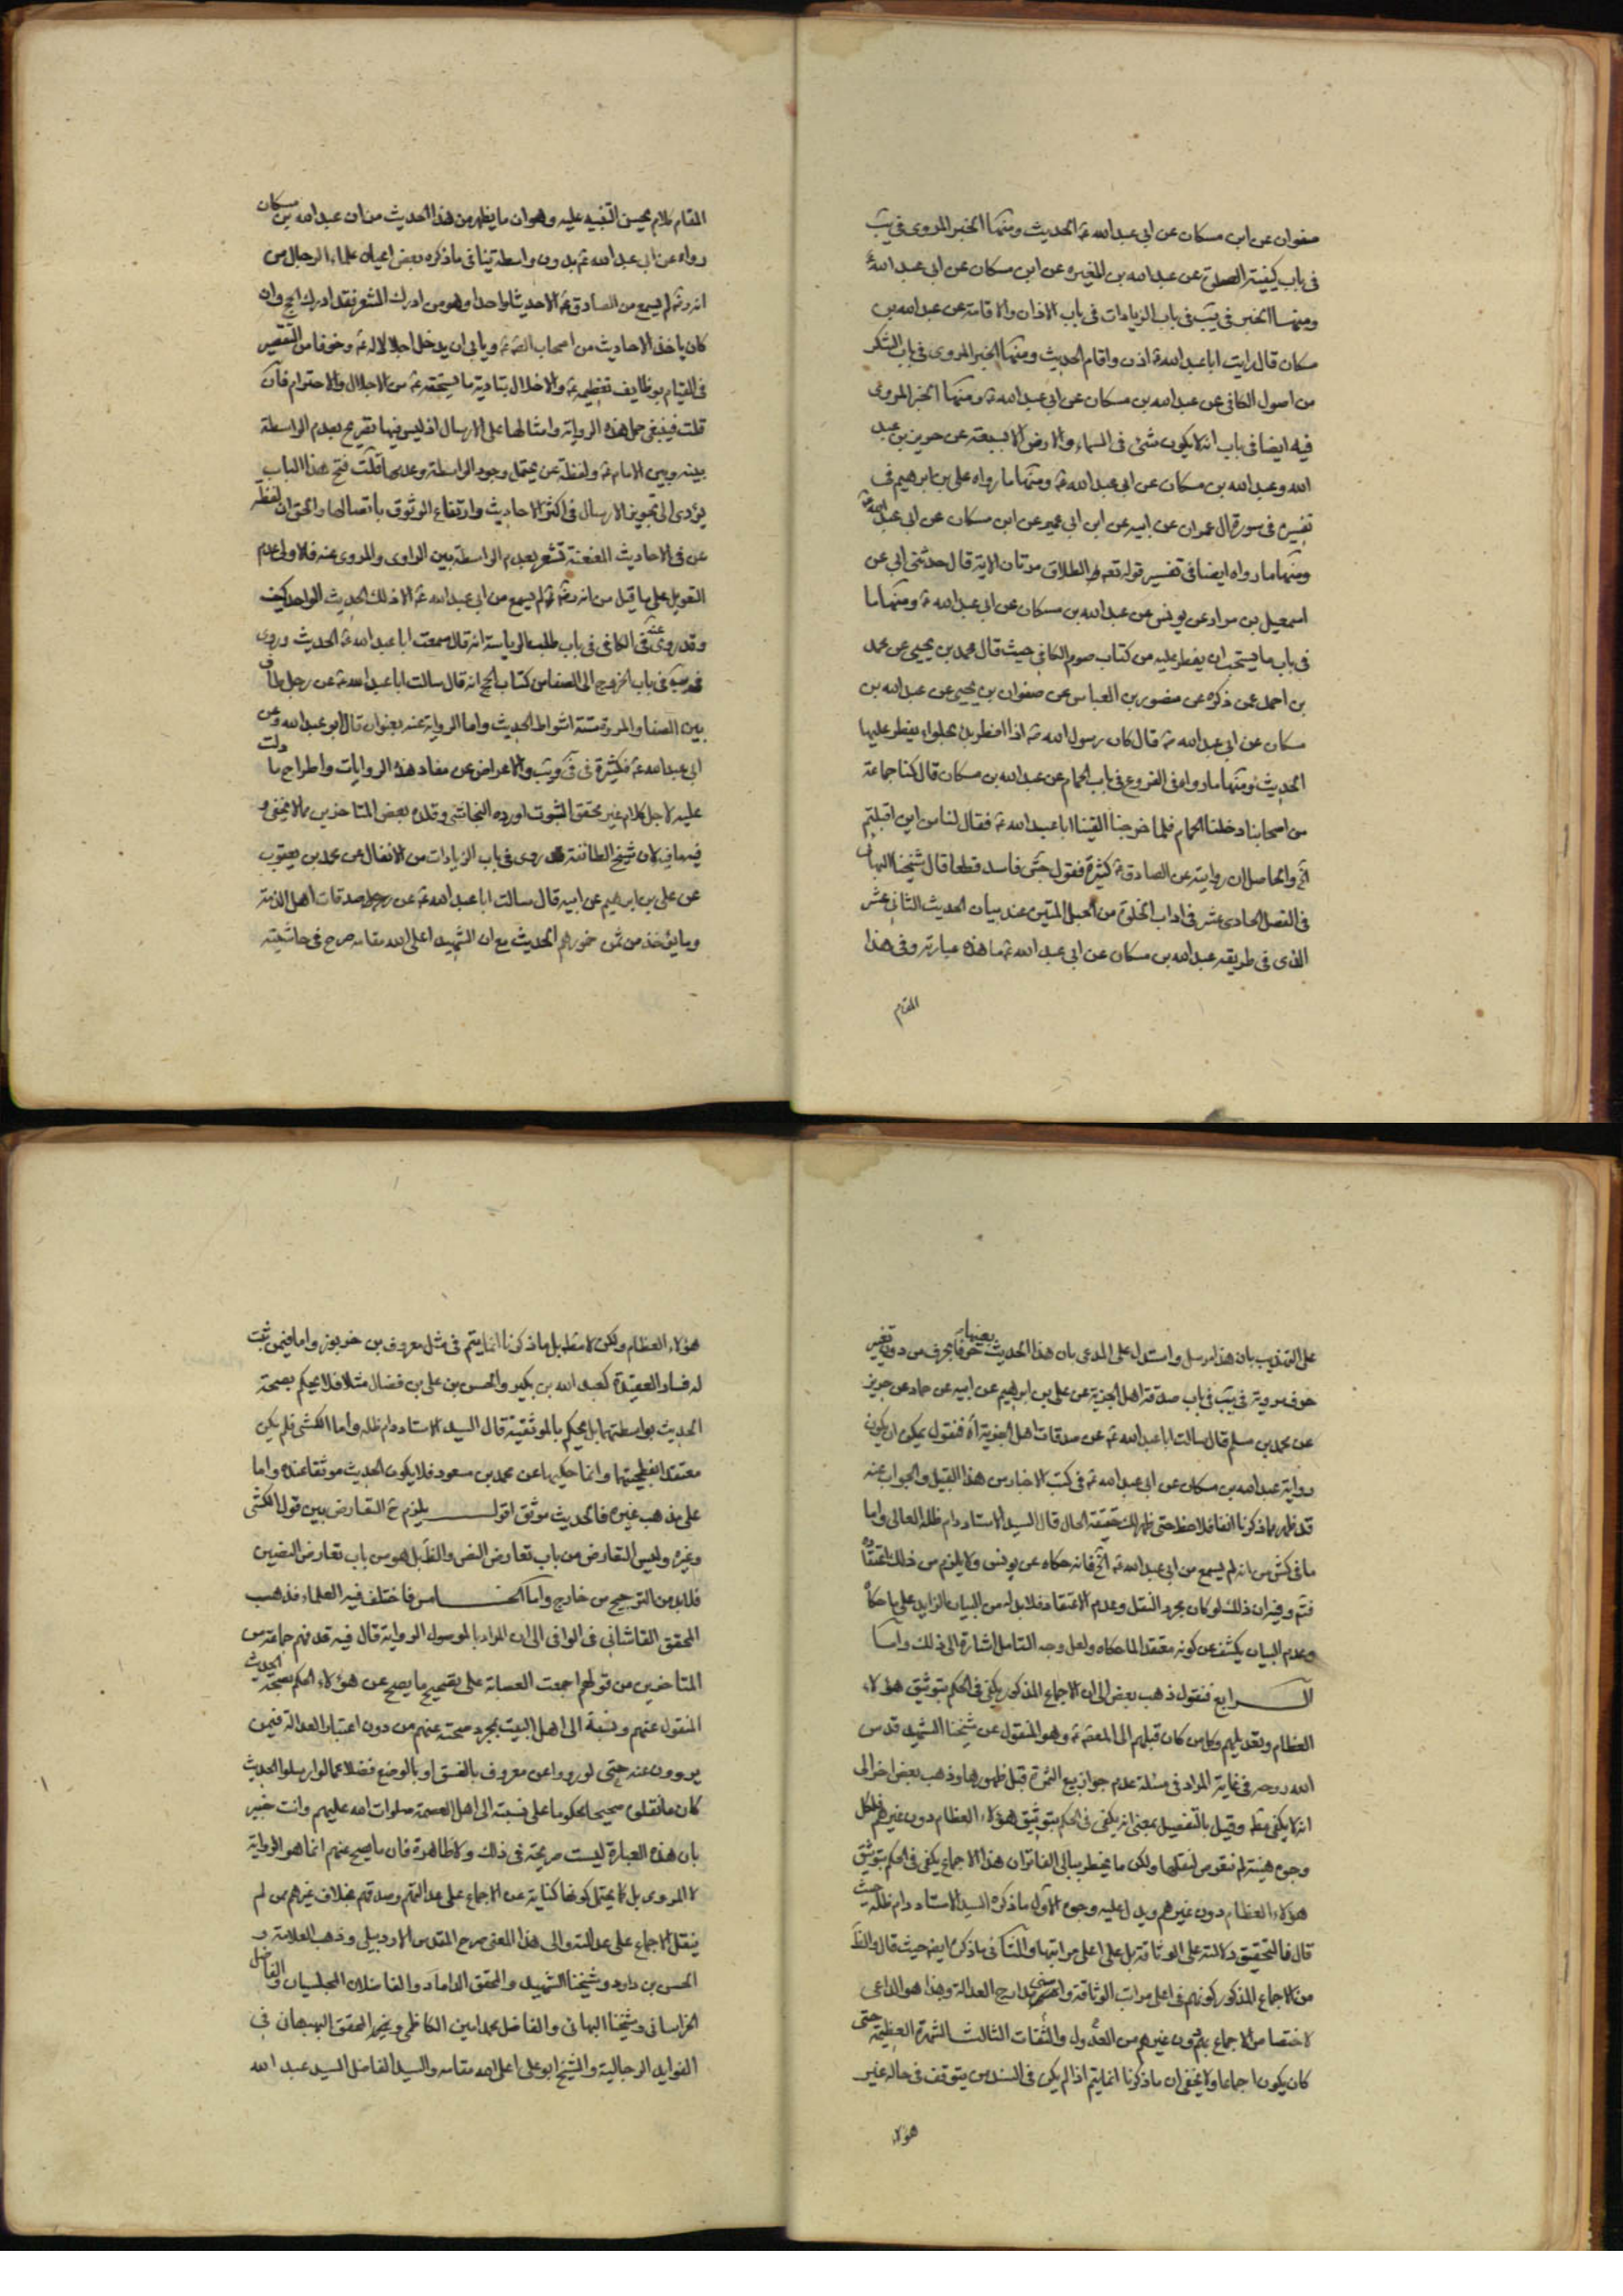 صفوان عن ابن مسكان عن ابى عبد الله ع الحديث ومنها الخبر المروى فى يب
فى باب كيفية الصلوة عن عبد الله بن المغيرة عن ابن مسكان عن ابى عبد الله ع
ومنها الخبر فى يب فى باب الزيادات فى باب الاذان والاقامة عن عبد الله بن
مسكان قال رايت ابا عبد الله ع اذن واقام الحديث ومنها الخبر المروى فى باب الشكر
من اصول الكافى عن عبد الله بن مسكان عن ابى عبد الله ع ومنها الخبر المروى
فيه ايضا فى باب انه لا يكون شئ فى السماء والارض الا بسبعة عن حريز بن عبد
الله وعبد الله بن مسكان عن ابى عبد الله ع ومنها ما رواه على بن ابرهيم فى
تفسيره فى سورة ال عمران عن ابيه عن ابن ابى عمير عن ابن مسكان عن ابى عبد الله ع
ومنها ما رواه ايضا فى تفسير قوله تعالى الطلاق مرتان الاية قال حدثنى ابى عن
اسمعيل بن مراد عن يونس عن عبد الله بن مسكان عن ابى عبد الله ع ومنها ما
فى باب ما يستحب ان يفطر عليه من كتاب صوم الكافى حيث قال محمد بن يحيى عن محمد
بن احمد عمن ذكره عن منصور بن العباس عن صفوان بن يحيى عن عبد الله بن
مسكان عن ابى عبد الله ع قال كان رسول الله ص اذا افطر بدء بحلواء يفطر عليها
الحديث ومنها ما رواه فى الفروع فى باب الحمام عن عبد الله بن مسكان قال كنا جماعة
من اصحابنا دخلنا الحمام فلما خرجنا القينا ابا عبد الله ع فقال لنا من اين اقبلتم
الخ والحاصل ان روايته عن الصادق ع كثيرة فقول جش فاسد قطعا قال شيخنا البهائى
فى الفصل الحادى عشر فى اداب الخلوة من الحبل المتين عند بيان الحديث الثانى عشر
الذى فى طريقه عبد الله بن مسكان عن ابى عبد الله ع ما هذه عبارته وفى هذا
المقام
المقام كلام يحسن التنبيه عليه وهو ان ما يظهر من هذا الحديث من ان عبد الله بن مسكان
رواه عن ابى عبد الله ع بدون واسطة ينافى ما ذكره بعض اعيان علماء الرجال من
انه ره لم يسمع من الصادق ع الا حديثا واحدا وهو من ادرك المشعر فقد ادرك الحج وان
كان ياخذ الاحاديث من اصحاب الصه ع ويابى ان يدخل اجلالا له ع وخوفا من التقصير
فى القيام بوظايف تعظيمه ع والاخلال بتادية ما يستحقه ع من الاجلال والاحترام فان
قلت فينبغى حمل هذه الرواية وامثالها على الارسال اذ ليس فيها تصريح بعدم الواسطة
بينه وبين الامام ع ولفظة عن يحتمل وجود الواسطة وعدمها قلت فتح هذا الباب
يؤدى الى تجويز الارسال فى اكثر الاحاديث وارتفاع الوثوق باتصالها والحق ان لفظة
عن فى الاحاديث المعنعنة تشعر بعدم الواسطة بين الراوى والمروى عنه فالاولى عدم
التعويل على ما قيل من انه ره لم يسمع من ابى عبد الله ع الا ذلك الحديث الواحد كيف
وقد روى عنه فى الكافى فى باب طلب الرياسة انه قال سمعت ابا عبد الله ع الحديث وروى
فى باب الخروج الى الصفا من كتاب الحج انه قال سالت ابا عبد الله ع عن رجل طاف
بين الصفا والمروة ستة اشواط الحديث واما الرواية عنه بعنوان قال ابو عبد الله وعن
ابى عبد الله ع فكثيرة فى فى ويب والاعراض عن مفاد هذه الروايات واطراح ما دلت
عليه لاجل كلام غير محقق الثبوت اورده النجاشى وقلده بعض المتاخرين مما لا يخفى و
فيها فى لان شيخ الطائفة روى فى باب الزيادات من الانفال عن محمد بن يعقوب
عن على بن ابرهيم عن ابيه قال سالت ابا عبد الله ع عن صدقات اهل الذمة
وما يؤخذ من ثمن خمورهم الحديث مع ان الشهيد اعلى الله مقامه صرح فى حاشيته
على التهذيب بان هذا مرسل واستدل على المدعى بان هذا الحديث بعينها حرفا بحرف من دون تغيير
حرف مروية فى يب فى باب صدقة اهل الجزية عن على بن ابرهيم عن ابيه عن حماد عن حريز
عن محمد بن مسلم قال سالت ابا عبد الله ع عن صدقات اهل الجزية اه فنقول يمكن ان يكون
رواية عبد الله بن مسكان عن ابى عبد الله ع فى كتب الاخبار من هذا القبيل والجواب عنه
قد ظهر مما ذكرنا انفا فلاحظ حتى ظهر لك حقيقة الحال قال السيد الاستاد دام ظله العالى واما
ما فى كش من انه لم يسمع من ابى عبد الله ع الخ فانه حكاه عن يونس ولا يلزم من ذلك اعتقاده
فتم وفيه ان ذلك لو كان مجرد النقل وعدم الاعتقاد فلا بد له من البيان الزايد على ما حكاه
وعدم البيان يكشف عن كونه معتقدا لما حكاه ولعل وجه التامل اشارة الى ذلك واما
الرابع فنقول ذهب بعض الى ان الاجماع المذكور يكفى فى الحكم بتوثيق هؤلاء
العظام وتعديلهم وكل من كان قبلهم الى المعصوم ع وهو المنقول عن شيخنا الشهيد قدس
الله روحه فى غاية المراد فى مسئلة عدم جواز بيع الثمرة قبل ظهورها وذهب بعض اخر الى
انه لا يكفى مط وقيل بالتفصيل بمعنى انه يكفى فى الحكم بتوثيق هؤلاء العظام دون غيرهم فلكل
وجوه هينة لم نقوم لنقلها ولكن ما يخطر ببالى الفاتر ان هذا الاجماع يكفى فى الحكم بتوثيق
هؤلاء العظام دون غيرهم ويدل عليه وجوه الاول ما ذكره السيد الاستاد دام ظله حيث
قال فالتحقيق دلالته على الوثاقة بل على اعلى مراتبها والثانى ما ذكره ايضا حيث قال والظ
من الاجماع المذكور كونهم فى اعلى مراتب الوثاقة واسنى مدارج العدالة وهذا هو الداعى
لاختصاص الاجماع بهم دون غيرهم من العدول والثقات الثالث الشهرة العظيمة حتى
كان يكون اجماعا ولا يخفى ان ما ذكرنا انما يتم اذا لم يكن فى السند من يتوقف فى حاله غير
هؤلاء
هؤلاء العظام ولكن لا مط بل ما ذكرنا انما يتم فى مثل معروف بن خربوز واما فيمن ثبت
له فساد العقيدة كعبد الله بن بكير والحسن بن على بن فضال مثلا فلا يحكم بصحة
الحديث بواسطتهما بل يحكم بالموثقية قال السيد الاستاد دام ظله واما الكشى فلم يكن
معتقدا بفطحيتهما وانما حكيهما عن محمد بن مسعود فلا يكون الحديث موثقا عنده واما
على مذهب غيره فالحديث موثق اقول يلزم ح التعارض بين قول الكشى
وغيره وليس التعارض من باب تعارض النص والظ بل هو من باب تعارض النصين
فلا بد من الترجيح من خارج واما الخامس فاختلف فيه العلماء فذهب
المحقق القاشانى فى الوافى الى ان المراد بالموصول الرواية قال فيه قد فهم جماعة من
المتاخرين من قولهم اجمعت العصابة على تصحيح ما يصح عن هؤلاء الحكم بصحة الحديث
المنقول عنهم ونسبة الى اهل البيت بمجرد صحته عنهم من دون اعتبار العدالة فيمن
يروون عنه حتى لو رووا عن معروف بالفسق او بالوضع فضلا عما لو ارسلوا الحديث
كان ما نقلوه صحيحا محكوما على نسبته الى اهل العصمة صلوات الله عليهم وانت خبير
بان هذه العبارة ليست صريحة فى ذلك ولا ظاهرة فان ما يصح عنهم انما هو الرواية
لا المروى بل لا يحتمل كونها كناية عن الاجماع على عدالتهم وصدقهم بخلاف غيرهم ممن لم
ينقل الاجماع على عدالته والى هذا المعنى صرح المقدس الاردبيلى وذهب العلامة و
الحسن بن داود وشيخنا الشهيد والمحقق الداماد والفاضلان المجلسيان والفاضل
الخراسانى وشيخنا البهائى والفاضل محمد امين الكاظمى وغيرهم المحقق البهبهانى فى
الفوايد الرجالية والشيخ ابو على اعلى الله مقامه والسيد الفاضل السيد عبد الله